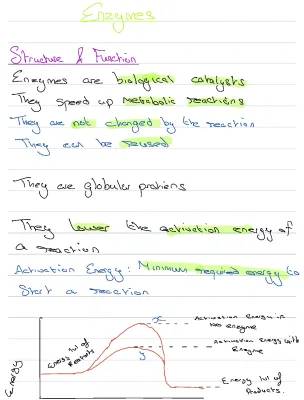 Enzymes
Structure & Function
Enzymes are biological catalysts
They speed up metabolic reactions
They are not changed by the reaction
They can be reused
They are globular protiens
They lower the activation energy of
a reaction
Activation Energy: Minimum required energy to
Start a reaction
x
Activation Energy in
no enzyme
Activation Energy with
Enzyme
y
Energy lvl of
Energy
Energy lvl of
Products.